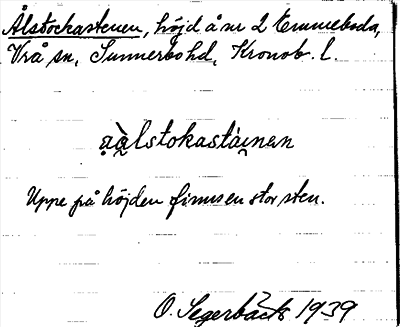 Ålstockastenen, höjd å nr 2 Emmeboda,
Vrå sn, Sunnerbo hd, Kronob. l.
Uppe på höjden finnes en stor sten.
O. Segerbäck 1939